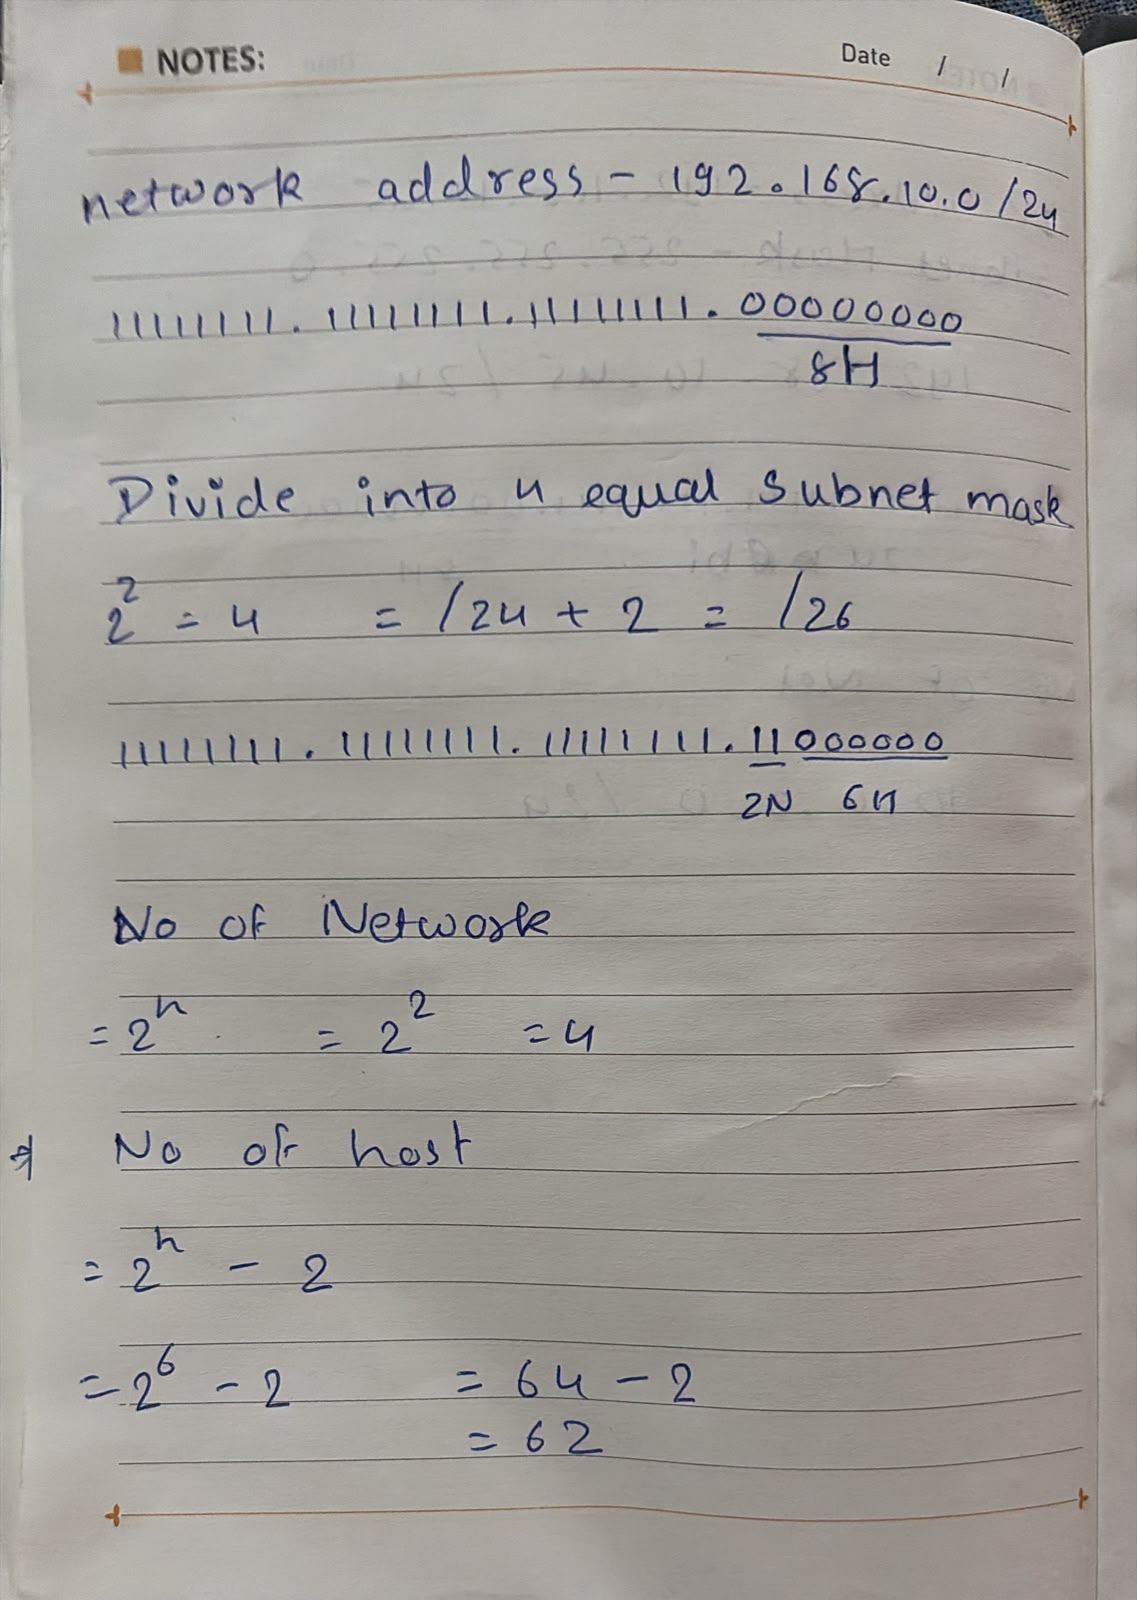 NOTES:
Date / /
network address - 192.168.10.0/24
11111111.11111111.11111111.00000000
8H
Divide into 4 equal subnet mask
2² = 4 = /24 + 2 = /26
11111111.11111111.11111111.11000000
2N 6H
No of Network
= 2ⁿ = 2² = 4
No of host
= 2ʰ - 2
= 2⁶ - 2 = 64 - 2
= 62